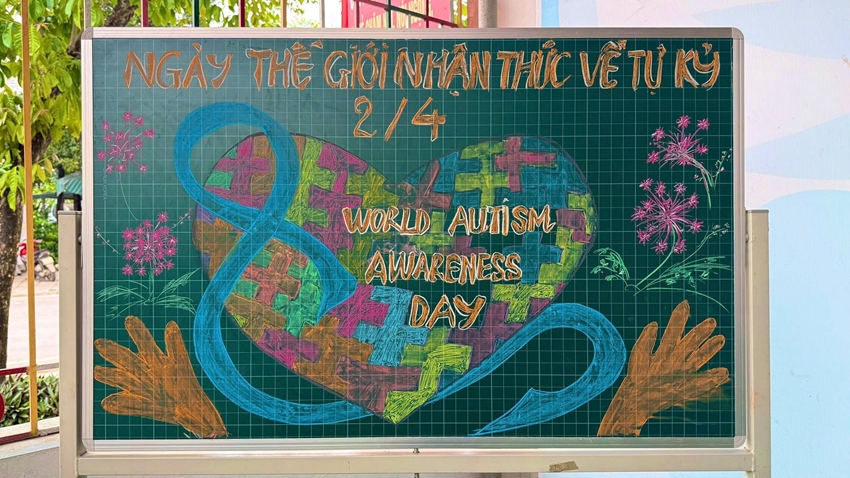 NGÀY THẾ GIỚI NHẬN THỨC VỀ TỰ KỶ
2/4
WORLD AUTISM
AWARENESS
DAY